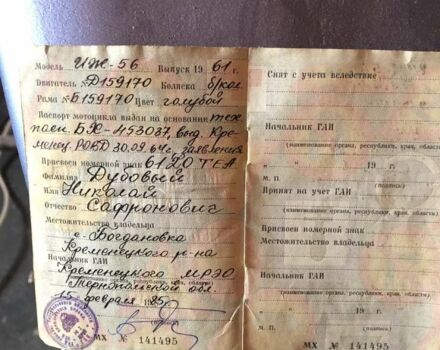 Модель ИЖ-56 Выпуск 1961 г.
Двигатель № Д159170 Коляска б/кол
Рама № Б159170 Цвет голубой
Паспорт мотоцикла выдан на основании тех.
пасп. БЖ-453087, выд. Кре-
менец. РОВД 30.09.64г., заявления
Присвоен номерной знак 6120 ТЕА
Фамилия Дубовый
Имя Николай
Отчество Сафронович
Местожительство владельца
с. Богдановка
Кременецкого р-на
Начальник ГАИ
Кременецкого МРЭО
Тернопольской обл.
15 февраля 1985 г.
МХ № 141495
Снят с учета вследствие
Начальник ГАИ
(наименование органа, республики, края, области)
19 г.
М. П.
Принят на учет ГАИ
(наименование органа, республики, края, области)
Присвоен номерной знак
Местожительство владельца
Начальник ГАИ
(наименование органа, республики, края, области)
19 г.
М. П.
МХ № 141495